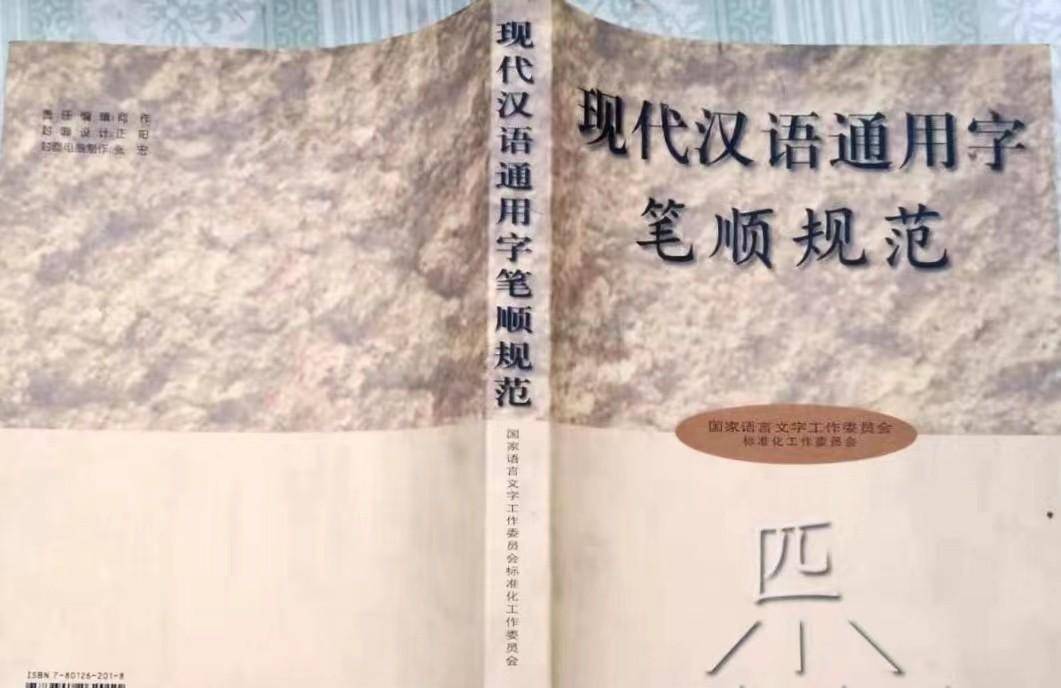 责任编辑:郑 作
封面设计:正 阳
封面电脑制作:张 宏
ISBN 7-80126-201-8
现代汉语通用字笔顺规范
国家语言文字工作委员会标准化工作委员会
现代汉语通用字
笔顺规范
国家语言文字工作委员会
标准化工作委员会